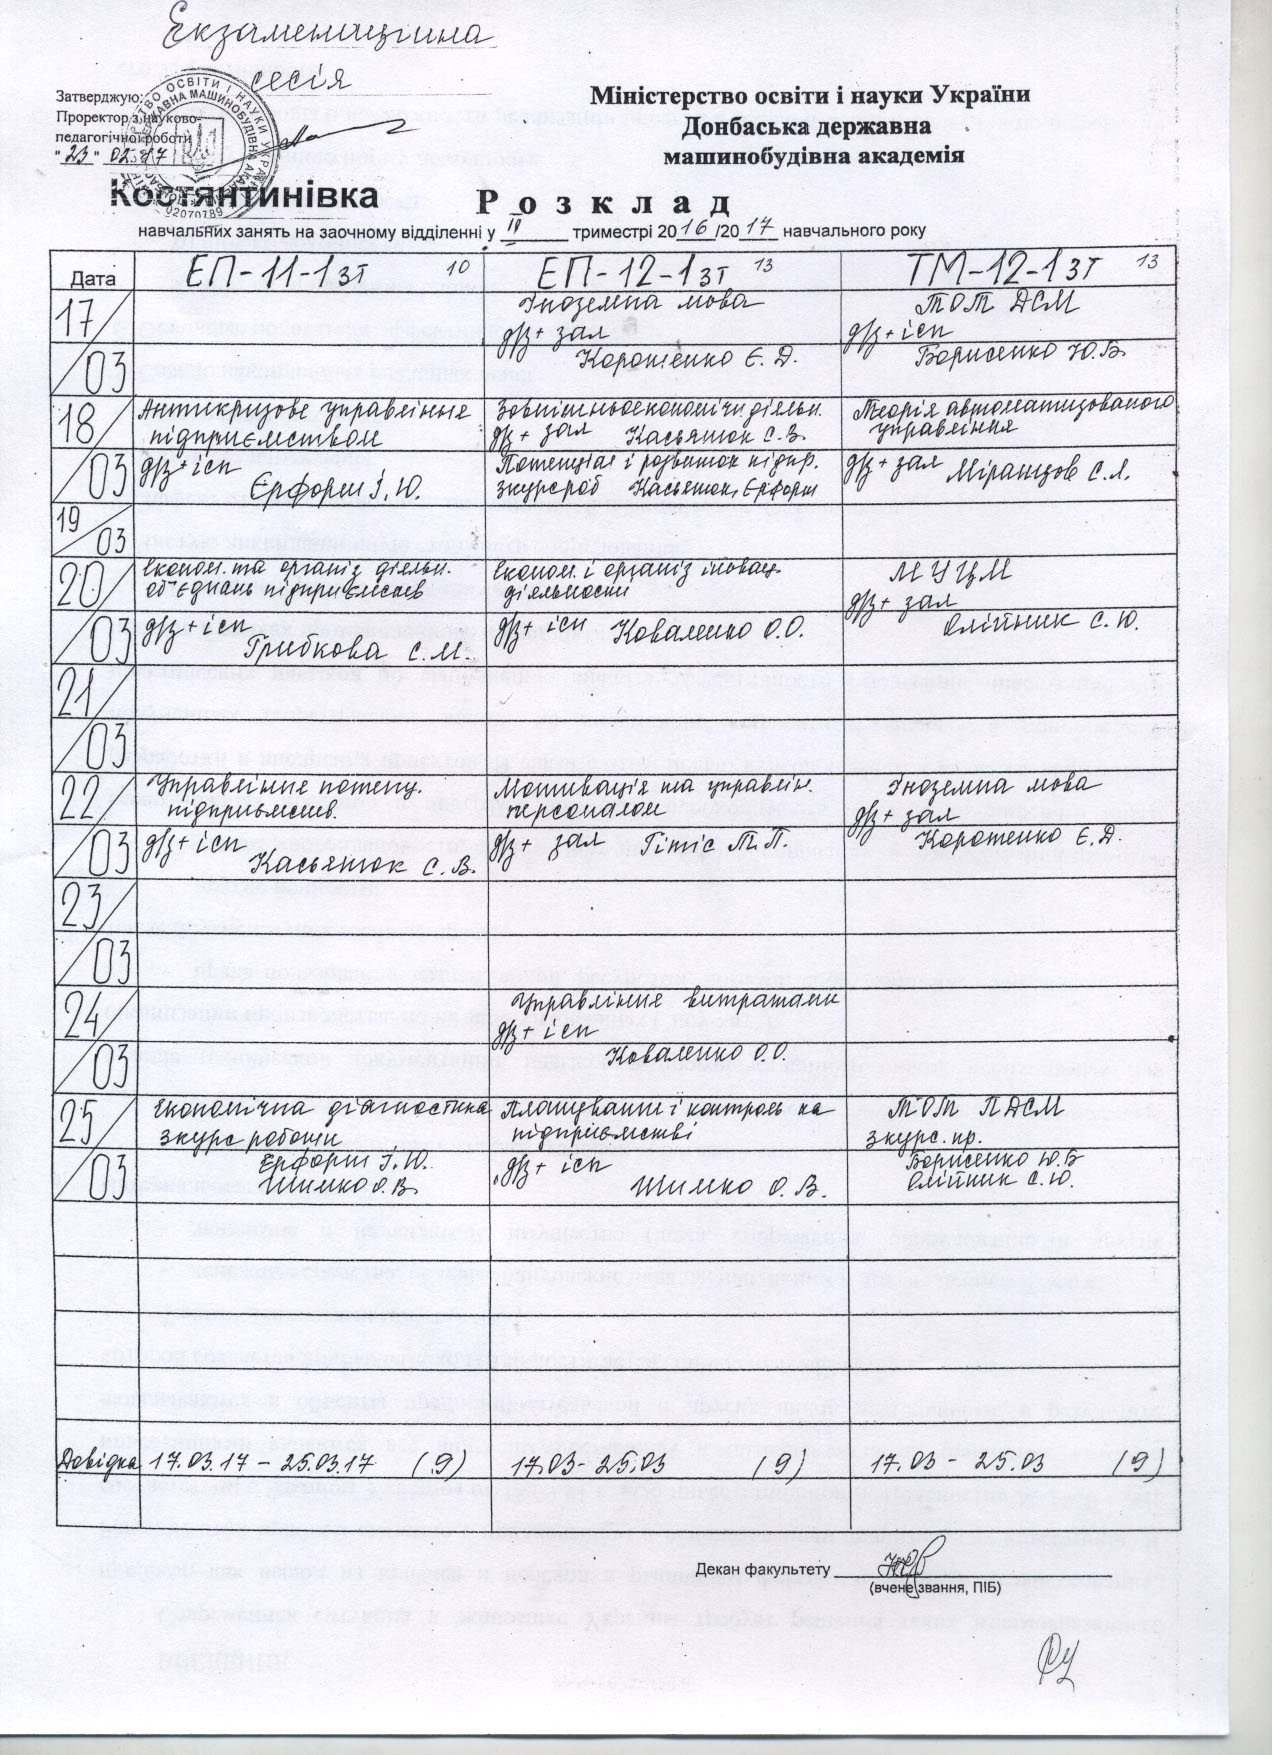 Екзаменаційна
сесія
Затверджую:
Проректор з науково-
педагогічної роботи
"23" 02.17
Міністерство освіти і науки України
Донбаська державна
машинобудівна академія
Костянтинівка
02070789
Розклад
навчальних занять на заочному відділенні у ІІ триместрі 2016/2017 навчального року
Дата
ЕП-11-1зт 10
ЕП-12-1зт 13
ТМ-12-1зт 13
17/03
Іноземна мова
д/з+ зал
Коротенко Є. Д.
ТОТ ДСМ
д/з+ ісп
Борисенко Ю.Б.
18/03
Антикризове управління
підприємством
д/з+ ісп
Єрфорт І. Ю.
Зовнішньоекономічн. діяльн.
д/з+ зал Касьянюк С.В.
Потенціал і розвиток підпр.
з курс роб Касьянюк, Єрфорт
Теорія автоматизованого
управління
д/з+ зал Міранцов С.Л.
19/03
20/03
Економ. та організ діяльн.
об'єднань підприємств
д/з+ ісп
Грибкова С.М.
Економ. і організ іновац.
діяльности
д/з+ ісп Коваленко О.О.
МУЦМ
д/з+ зал
Олійник С.Ю.
21/03
22/03
Управління потенц.
підприємств.
д/з+ ісп
Касьянюк С. В.
Мотивація та управлін.
персоналом
д/з+ зал Гітіс Т.П.
Іноземна мова
д/з+ зал
Коротенко Є.Д.
23/03
24/03
Управління витратами
д/з+ ісп
Коваленко О.О.
25/03
Економічна діагностика
з курс роботи
Єрфорт І.Ю.
Шимко О.В.
Планування і контроль на
підприємстві
д/з+ ісп
Шимко О.В.
ТОТ ПДСМ
з курс. пр.
Борисенко Ю.Б
Олійник С.Ю.
Довідка 17.03.17 – 25.03.17 (9)
17.03- 25.03 (9)
17.03 - 25.03 (9)
Декан факультету
(вчене звання, ПІБ)